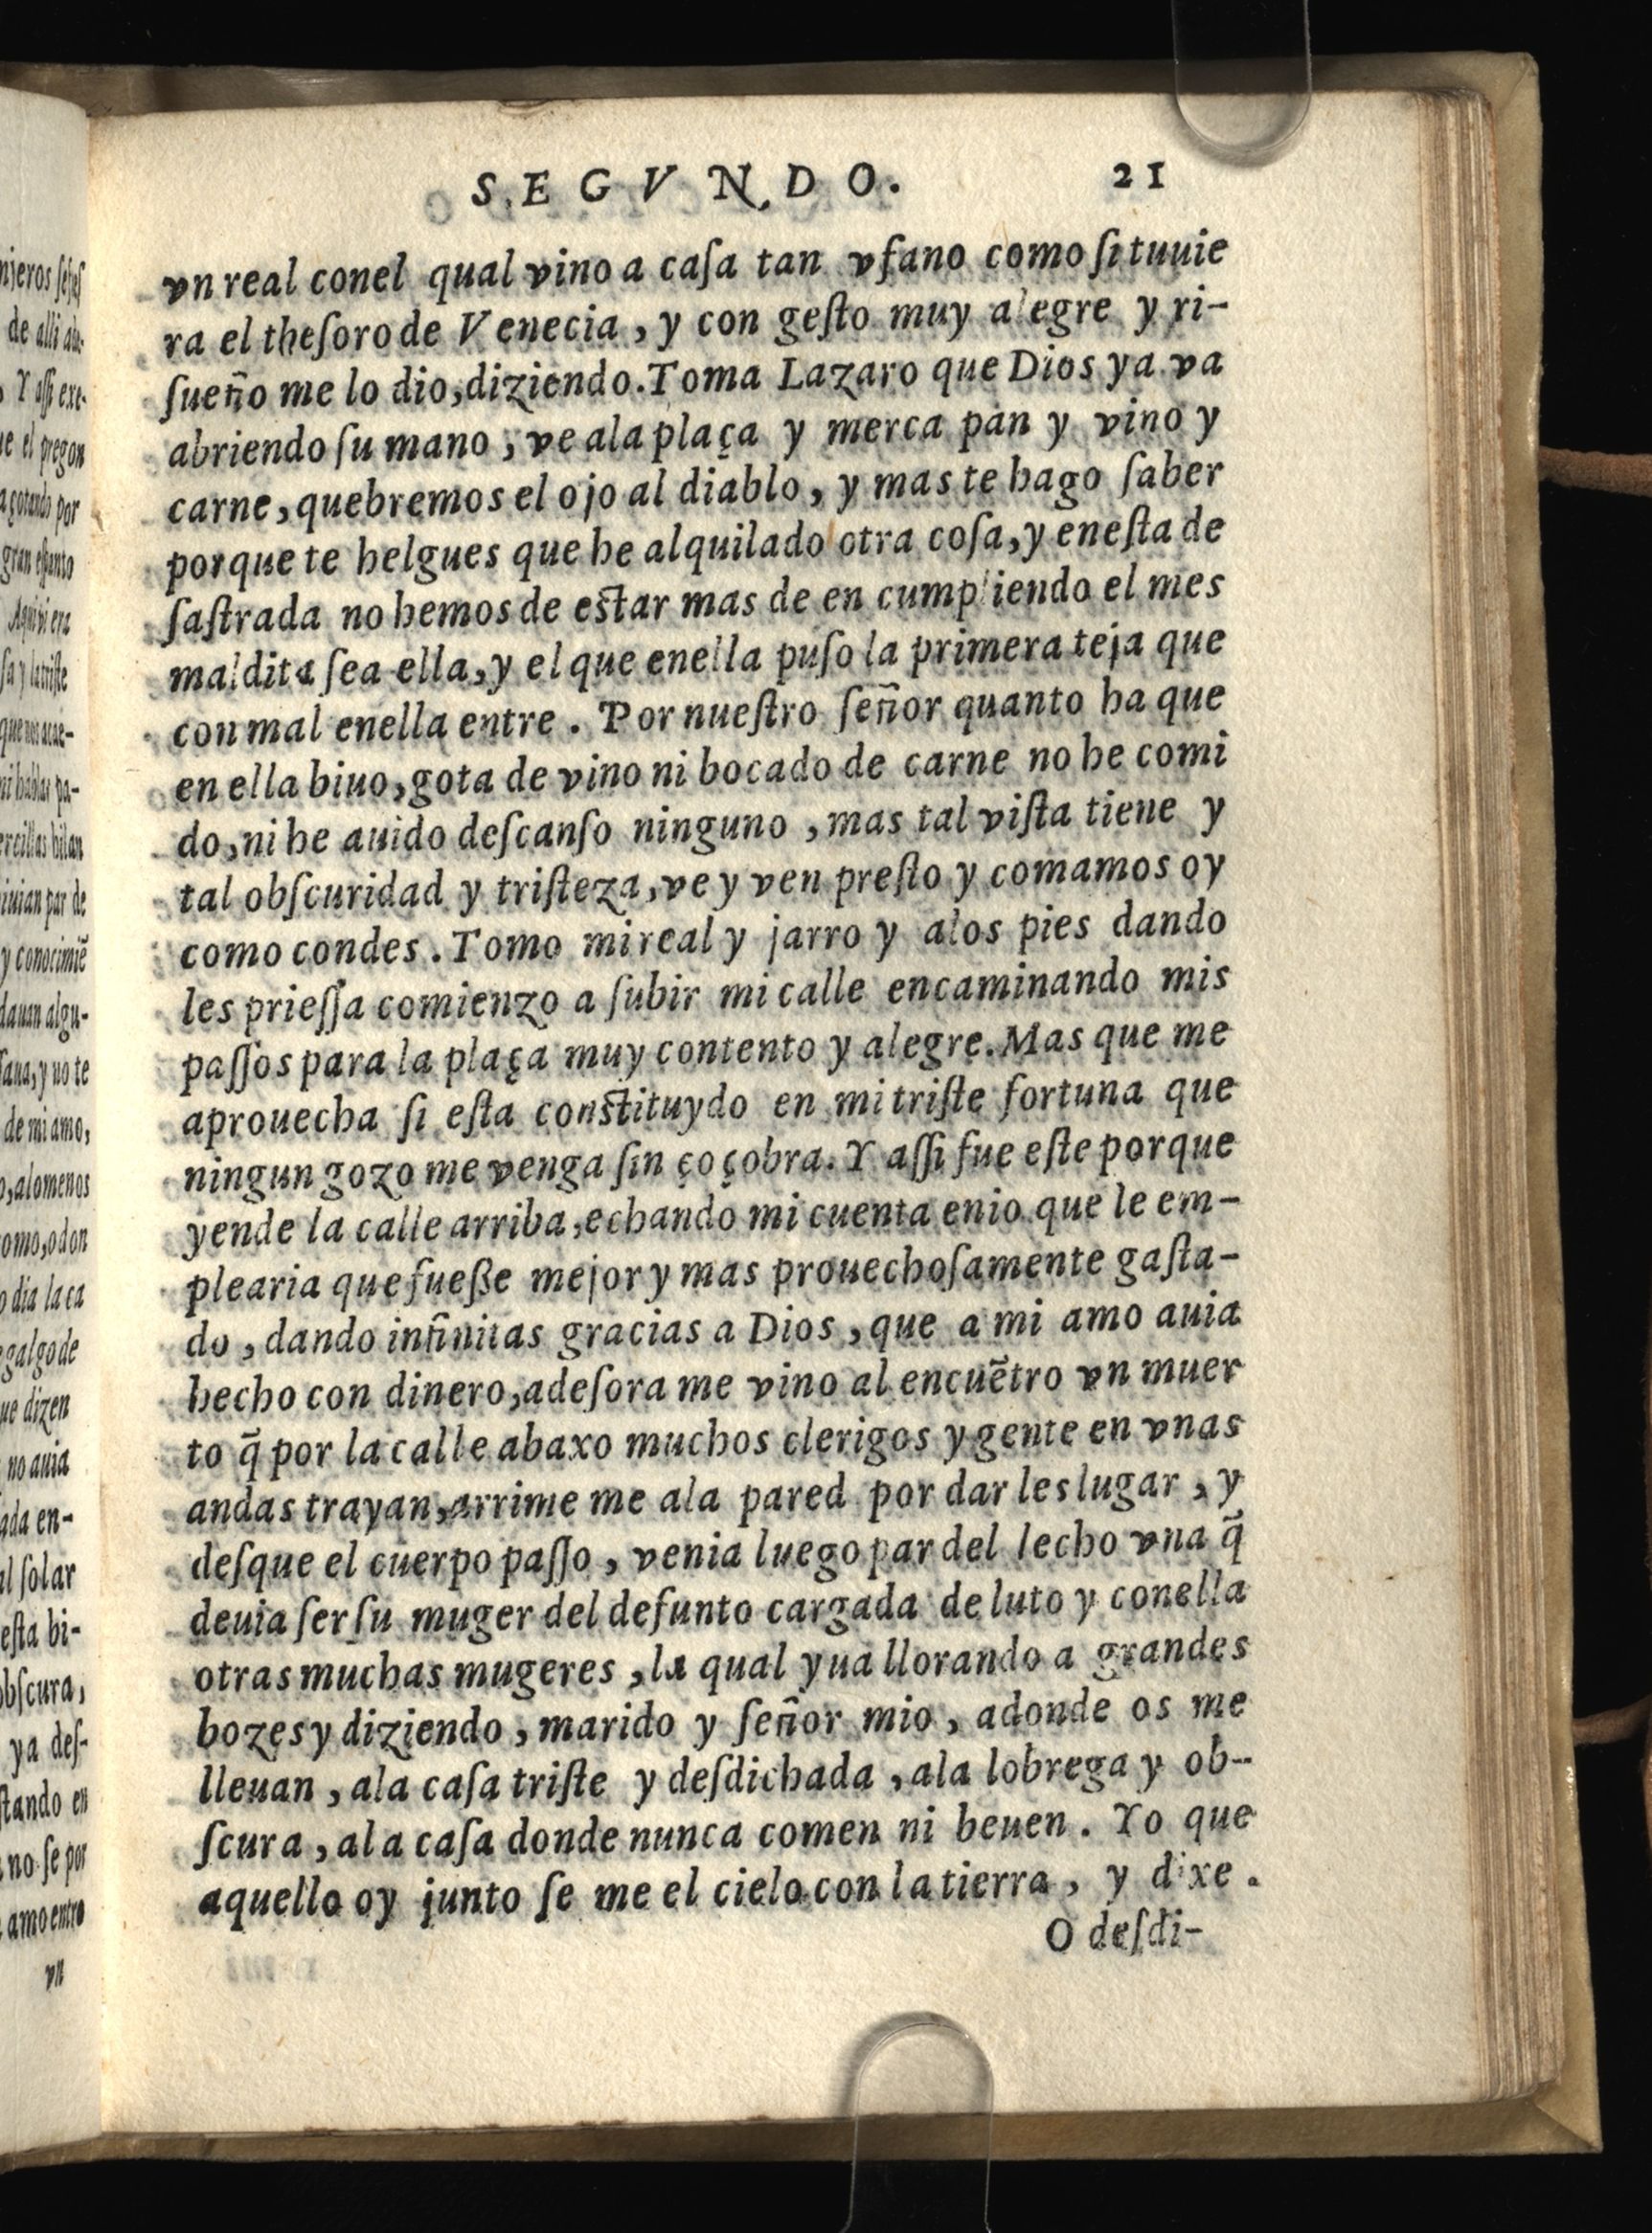 SEGVNDO. 21
vn real conel qual vino a caſa tan vfano como ſi tuuie
ra el theſoro de Venecia, y con geſto muy alegre y ri-
ſueño me lo dio, diziendo. Toma Lazaro que Dios ya va
abriendo ſu mano, ve ala plaça y merca pan y vino y
carne, quebremos el ojo al diablo, y mas te hago ſaber
porque te helgues que he alquilado otra coſa, y eneſta de
ſaſtrada no hemos de estar mas de en cumpliendo el mes
maldita ſea ella, y el que enella puſo la primera teja que
con mal enella entre. Por nueſtro ſeñor quanto ha que
en ella biuo, gota de vino ni bocado de carne no he comi
do, ni he auido deſcanſo ninguno, mas tal viſta tiene y
tal obſcuridad y triſteza, ve y ven preſto y comamos oy
como condes. Tomo mi real y jarro y alos pies dando
les prieſſa comienzo a ſubir mi calle encaminando mis
paſſos para la plaça muy contento y alegre. Mas que me
aprouecha ſi eſta constituydo en mi triſte fortuna que
ningun gozo me venga ſin çoçobra. Y aſſi fue eſte porque
yende la calle arriba, echando mi cuenta enio que le em-
plearia que fueſſe mejor y mas prouechoſamente gaſta-
do, dando infinitas gracias a Dios, que a mi amo auia
hecho con dinero, adeſora me vino al encuẽtro vn muer
to q̃ por la calle abaxo muchos clerigos y gente en vnas
andas trayan, arrime me ala pared por dar les lugar, y
deſque el cuerpo paſſo, venia luego par del lecho vna q̃
deuia ſer ſu muger del defunto cargada de luto y conella
otras muchas mugeres, la qual yua llorando a grandes
bozes y diziendo, marido y ſeñor mio, adonde os me
lleuan, ala caſa triſte y deſdichada, ala lobrega y ob-
ſcura, ala caſa donde nunca comen ni beuen. Yo que
aquello oy junto ſe me el cielo con la tierra, y dixe.
O deſdi-